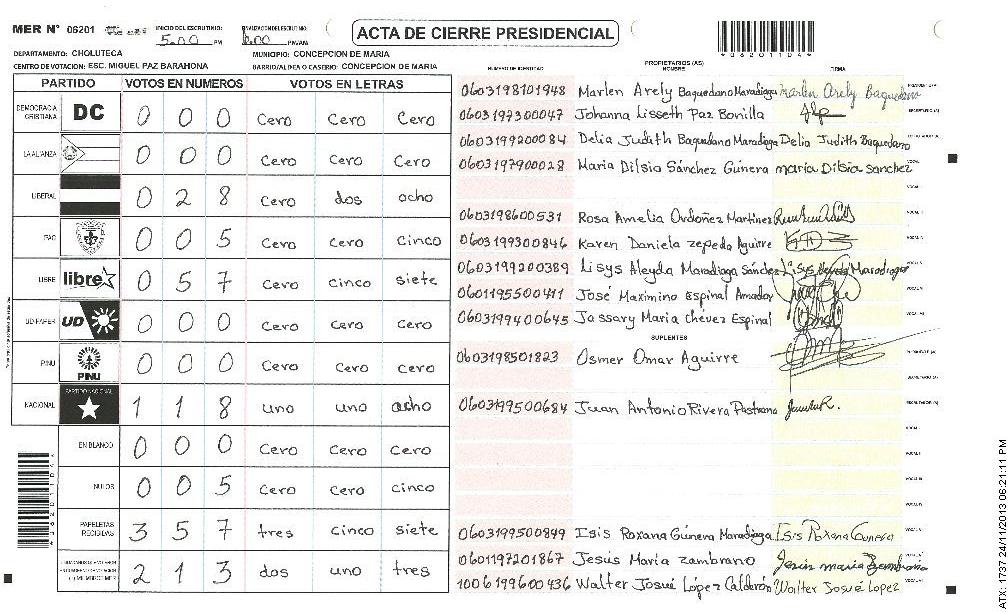 MER N° 06201 INICIO DEL ESCRUTINIO: 5:00 PM FINALIZACION DEL ESCRUTINIO: PM/AM
ACTA DE CIERRE PRESIDENCIAL
*06201104*
DEPARTAMENTO: CHOLUTECA MUNICIPIO: CONCEPCION DE MARIA
CENTRO DE VOTACION: ESC. MIGUEL PAZ BARAHONA BARRIO/ALDEA O CASERIO: CONCEPCION DE MARIA
PARTIDO VOTOS EN NUMEROS VOTOS EN LETRAS
DEMOCRACIA CRISTIANA DC 0 0 0 Cero Cero Cero
LA ALIANZA 0 0 0 Cero Cero Cero
LIBERAL 0 2 8 Cero dos ocho
PAC 0 0 5 Cero Cero cinco
LIBRE libre 0 5 7 Cero cinco siete
UD FAPER UD 0 0 0 Cero Cero Cero
PINU PINU 0 0 0 Cero Cero Cero
NACIONAL PARTIDO NACIONAL 1 1 8 uno uno ocho
EN BLANCO 0 0 0 Cero Cero Cero
NULOS 0 0 5 Cero Cero cinco
PAPELETAS RECIBIDAS 3 5 7 tres cinco siete
2 1 3 dos uno tres
NUMERO DE IDENTIDAD PROPIETARIOS (AS) NOMBRE FIRMA
0603198101948 Marlen Arely Baquedano Maradiaga Marlen Arely Baquedano
0603197300047 Johanna Lisseth Paz Bonilla
0603199200084 Delia Judith Baquedano Maradiaga Delia Judith Baquedano
0603197900028 Maria Dilsia Sánchez Gúnera maria Dilsia Sanchez
0603198600531 Rosa Amelia Ordoñez Martinez
0603199300846 Karen Daniela zepeda Aguirre
0603199200389 Lisys Aleyda Maradiaga Sánchez Lisys Aleyda Maradiaga
0601195500411 José Maximino Espinal Amador
0603199400645 Jassary Maria Chévez Espinal
SUPLENTES
0603198501823 Osmer Omar Aguirre
0603199500684 Juan Antonio Rivera Pastrana
0603199500849 Isis Roxana Gúnera Maradiaga Isis Roxana Gunera
0601197201867 Jesús Maria zambrano Jesus maria Zambrano
1006199600436 Walter Josué López Calderón Walter Josué Lopez
ATX: 1737 24/11/2013 06:21:11 PM